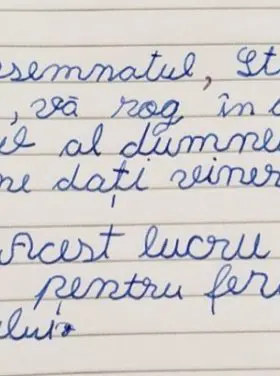 esemnatul, St
, vă rog în a
ul al dumne
ne dați viner
Acest lucru
pentru fer
elui.